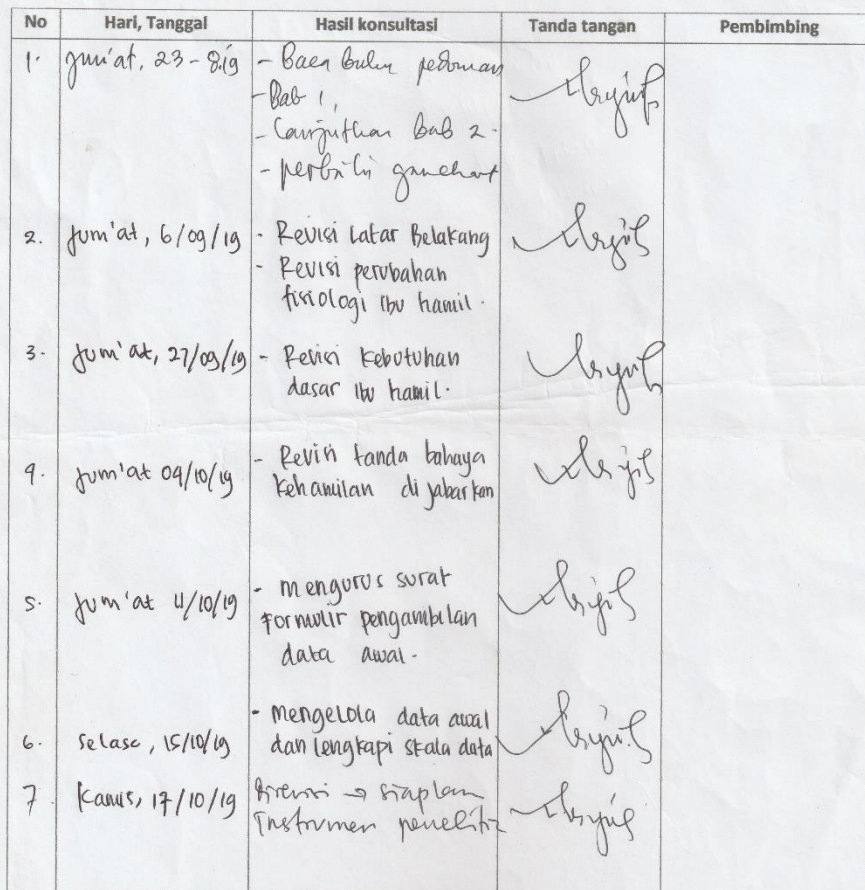 No Hari, Tanggal Hasil konsultasi Tanda tangan Pembimbing
1. Jum'at, 23-8-19 - Baca buku pedoman
- Bab 1,
- Lanjutkan bab 2.
- perbaiki
2. Jum'at, 6/09/19 - Revisi Latar Belakang
- Revisi perubahan
fisiologi ibu hamil.
3. Jum'at, 27/09/19 - Revisi Kebutuhan
dasar ibu hamil.
4. Jum'at 04/10/19 - Revisi tanda bahaya
kehamilan di jabarkan
5. Jum'at 11/10/19 - mengurus surat
Formulir pengambilan
data awal.
6. Selasa, 15/10/19 - Mengelola data awal
dan lengkapi skala data
7 Kamis, 17/10/19 Direvisi → siapkan
Instrumen